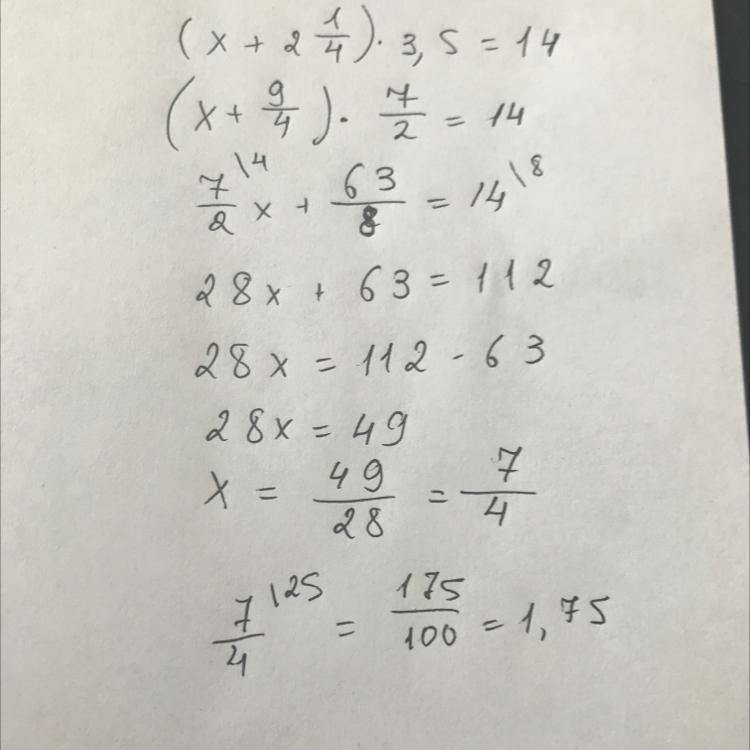 (x + 2 1/4) · 3,5 = 14
(x + 9/4) · 7/2 = 14
7/2 \4 x + 63/8 = 14 \8
28x + 63 = 112
28x = 112 - 63
28x = 49
x = 49/28 = 7/4
7/4 \25 = 175/100 = 1,75